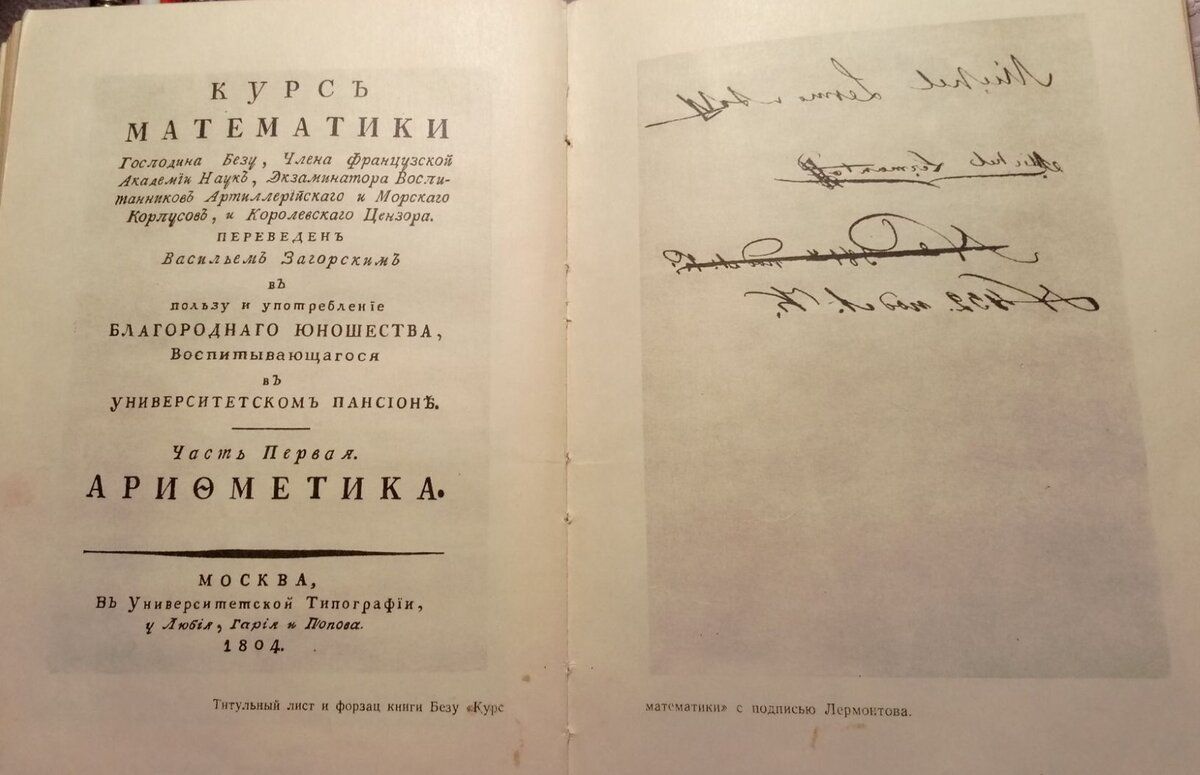 КУРСЪ
МАТЕМАТИКИ
Господина Безу, Члена Французской
Академіи Наукъ, Экзаминатора Воспи-
танниковъ Артиллерійскаго и Морскаго
Корпусовъ, и Королевскаго Цензора.
ПЕРЕВЕДЕНЪ
Васильемъ Загорскимъ
въ
пользу и употребленіе
БЛАГОРОДНАГО ЮНОШЕСТВА,
Воспитывающагося
въ
УНИВЕРСИТЕТСКОМЪ ПАНСІОНѢ.
Часть Первая.
АРИѲМЕТИКА.
МОСКВА,
Въ Университетской Типографіи,
у Любія, Гарія и Попова.
1804.
Титульный лист и форзац книги Безу «Курс
Michel
Michel
математики» с подписью Лермонтова.